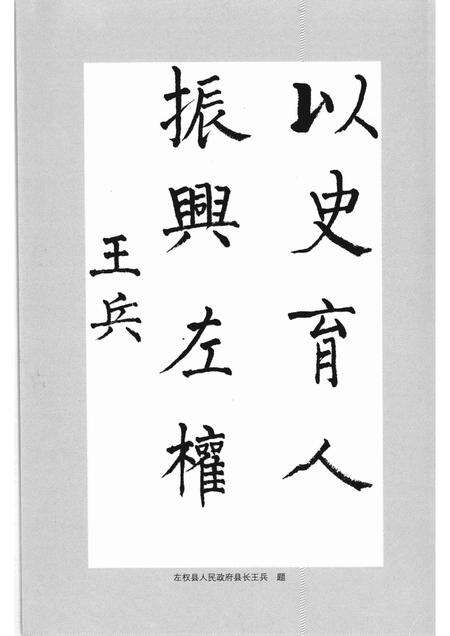 以史育人
振興左權
王兵
左权县人民政府县长王兵 题